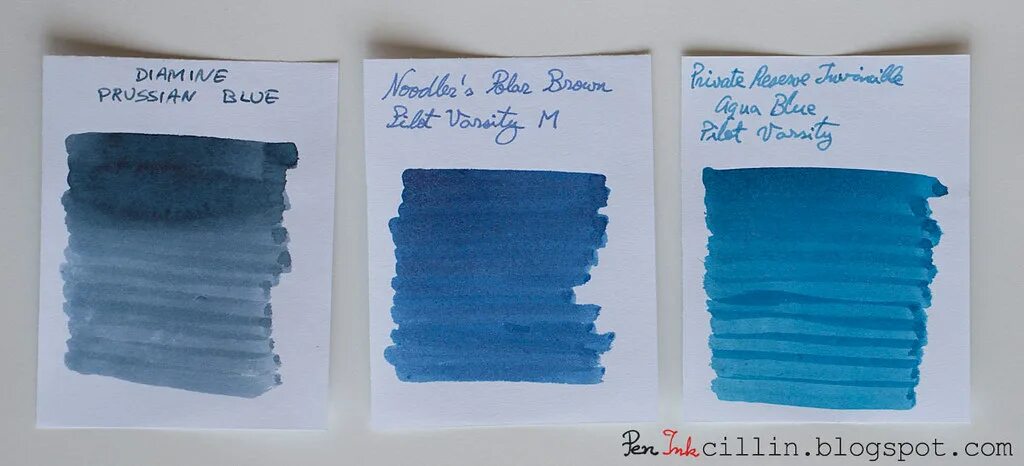 DIAMINE
PRUSSIAN BLUE
Noodler's Polar Brown
Pilot Varsity M
Private Reserve Invincible
Aqua Blue
Pilot Varsity
Pen Inkcillin.blogspot.com